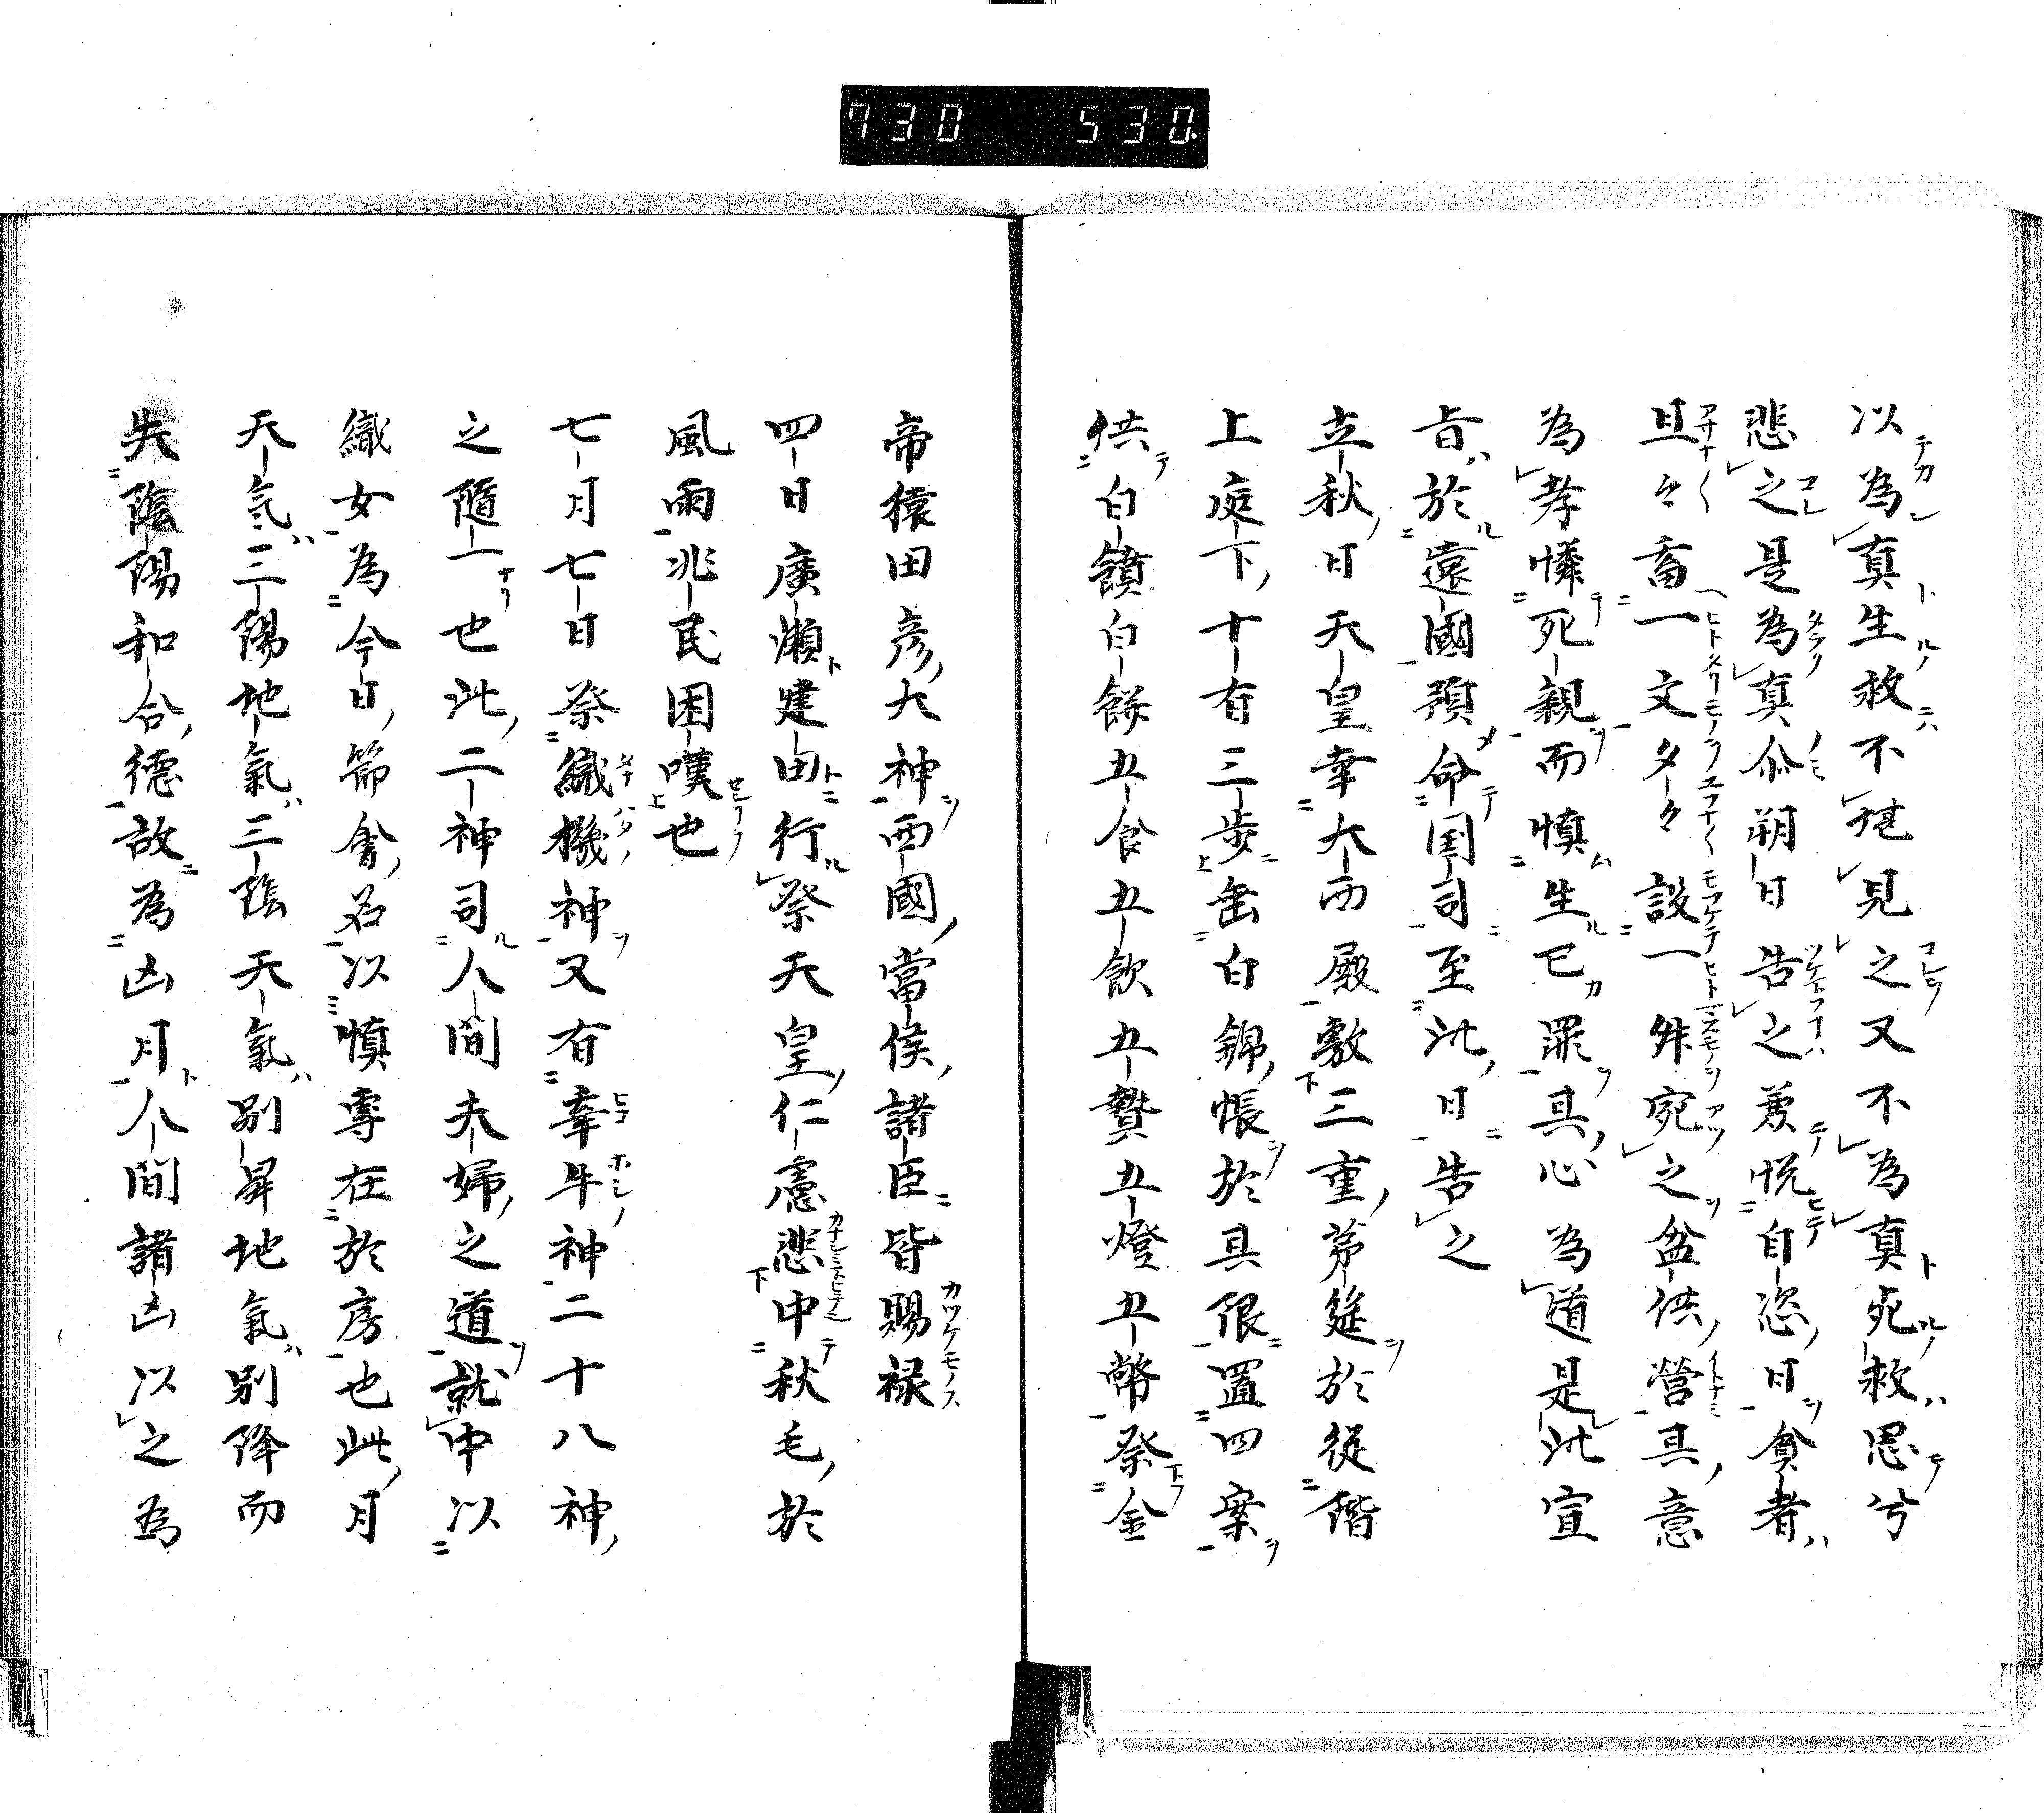 730 530.
以為真生救不堪見之又不為真死救思兮
悲之是為真忝朔日告之義悦自恣日貧者
旦々畜一文夕々設一舛宛之盆供營具意
為孝憐死親而慎生已罪具心為道是此宣
旨於遠國預命国司至此日告之
立秋日天皇幸大西殿敷三重茅筵於從階
上庭下十有三步缶白錦帳於具限置四案
供白饙白餅五食五飲五贄五燈五幣祭金
帝猿田彦大神西國當侯諸臣皆賜禄
四日廣瀬建田行祭天皇仁慮悲中秋毛於
風雨兆民困嘆也
七月七日祭織機神又有牽牛神二十八神
之隨一也此二神司人間夫婦之道就中以
織女為今日節會名以慎專在於房也此月
天氣三陽地氣三陰天氣別昇地氣別降而
失陰陽和合德故為凶月人間諸凶以之為